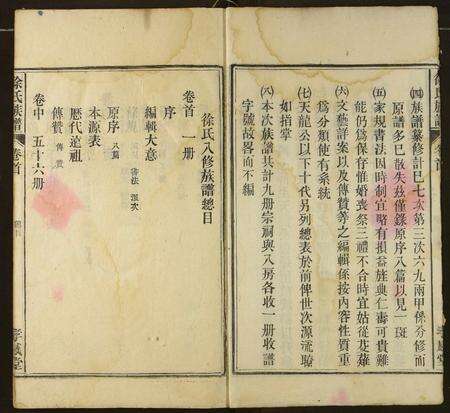 ㈣族譜纂修計已七次第三次六九兩甲係分修而
原譜多已散失茲僅錄原序八篇以見一斑
㈤家規書法因時制宜略有損益旌典仁壽可貴難
能仍為保存惟婚喪祭三禮不合時宜姑從芟薙
㈥文藝詳案以及傳贊等之編輯係按內容性質重
為分類使有系統
㈦天龍公以下十代另列總表於前俾世次源流瞭
如指掌
㈧本次族譜共計九册宗祠與八房各收一册收譜
字號故畧而不編
徐氏族譜 卷首
孝感堂
徐氏八修族譜總目
卷首 一册
序
編輯大意
原序 八篇
本源表
歷代遠祖
傳贊 傳 贊
卷中 五十六册